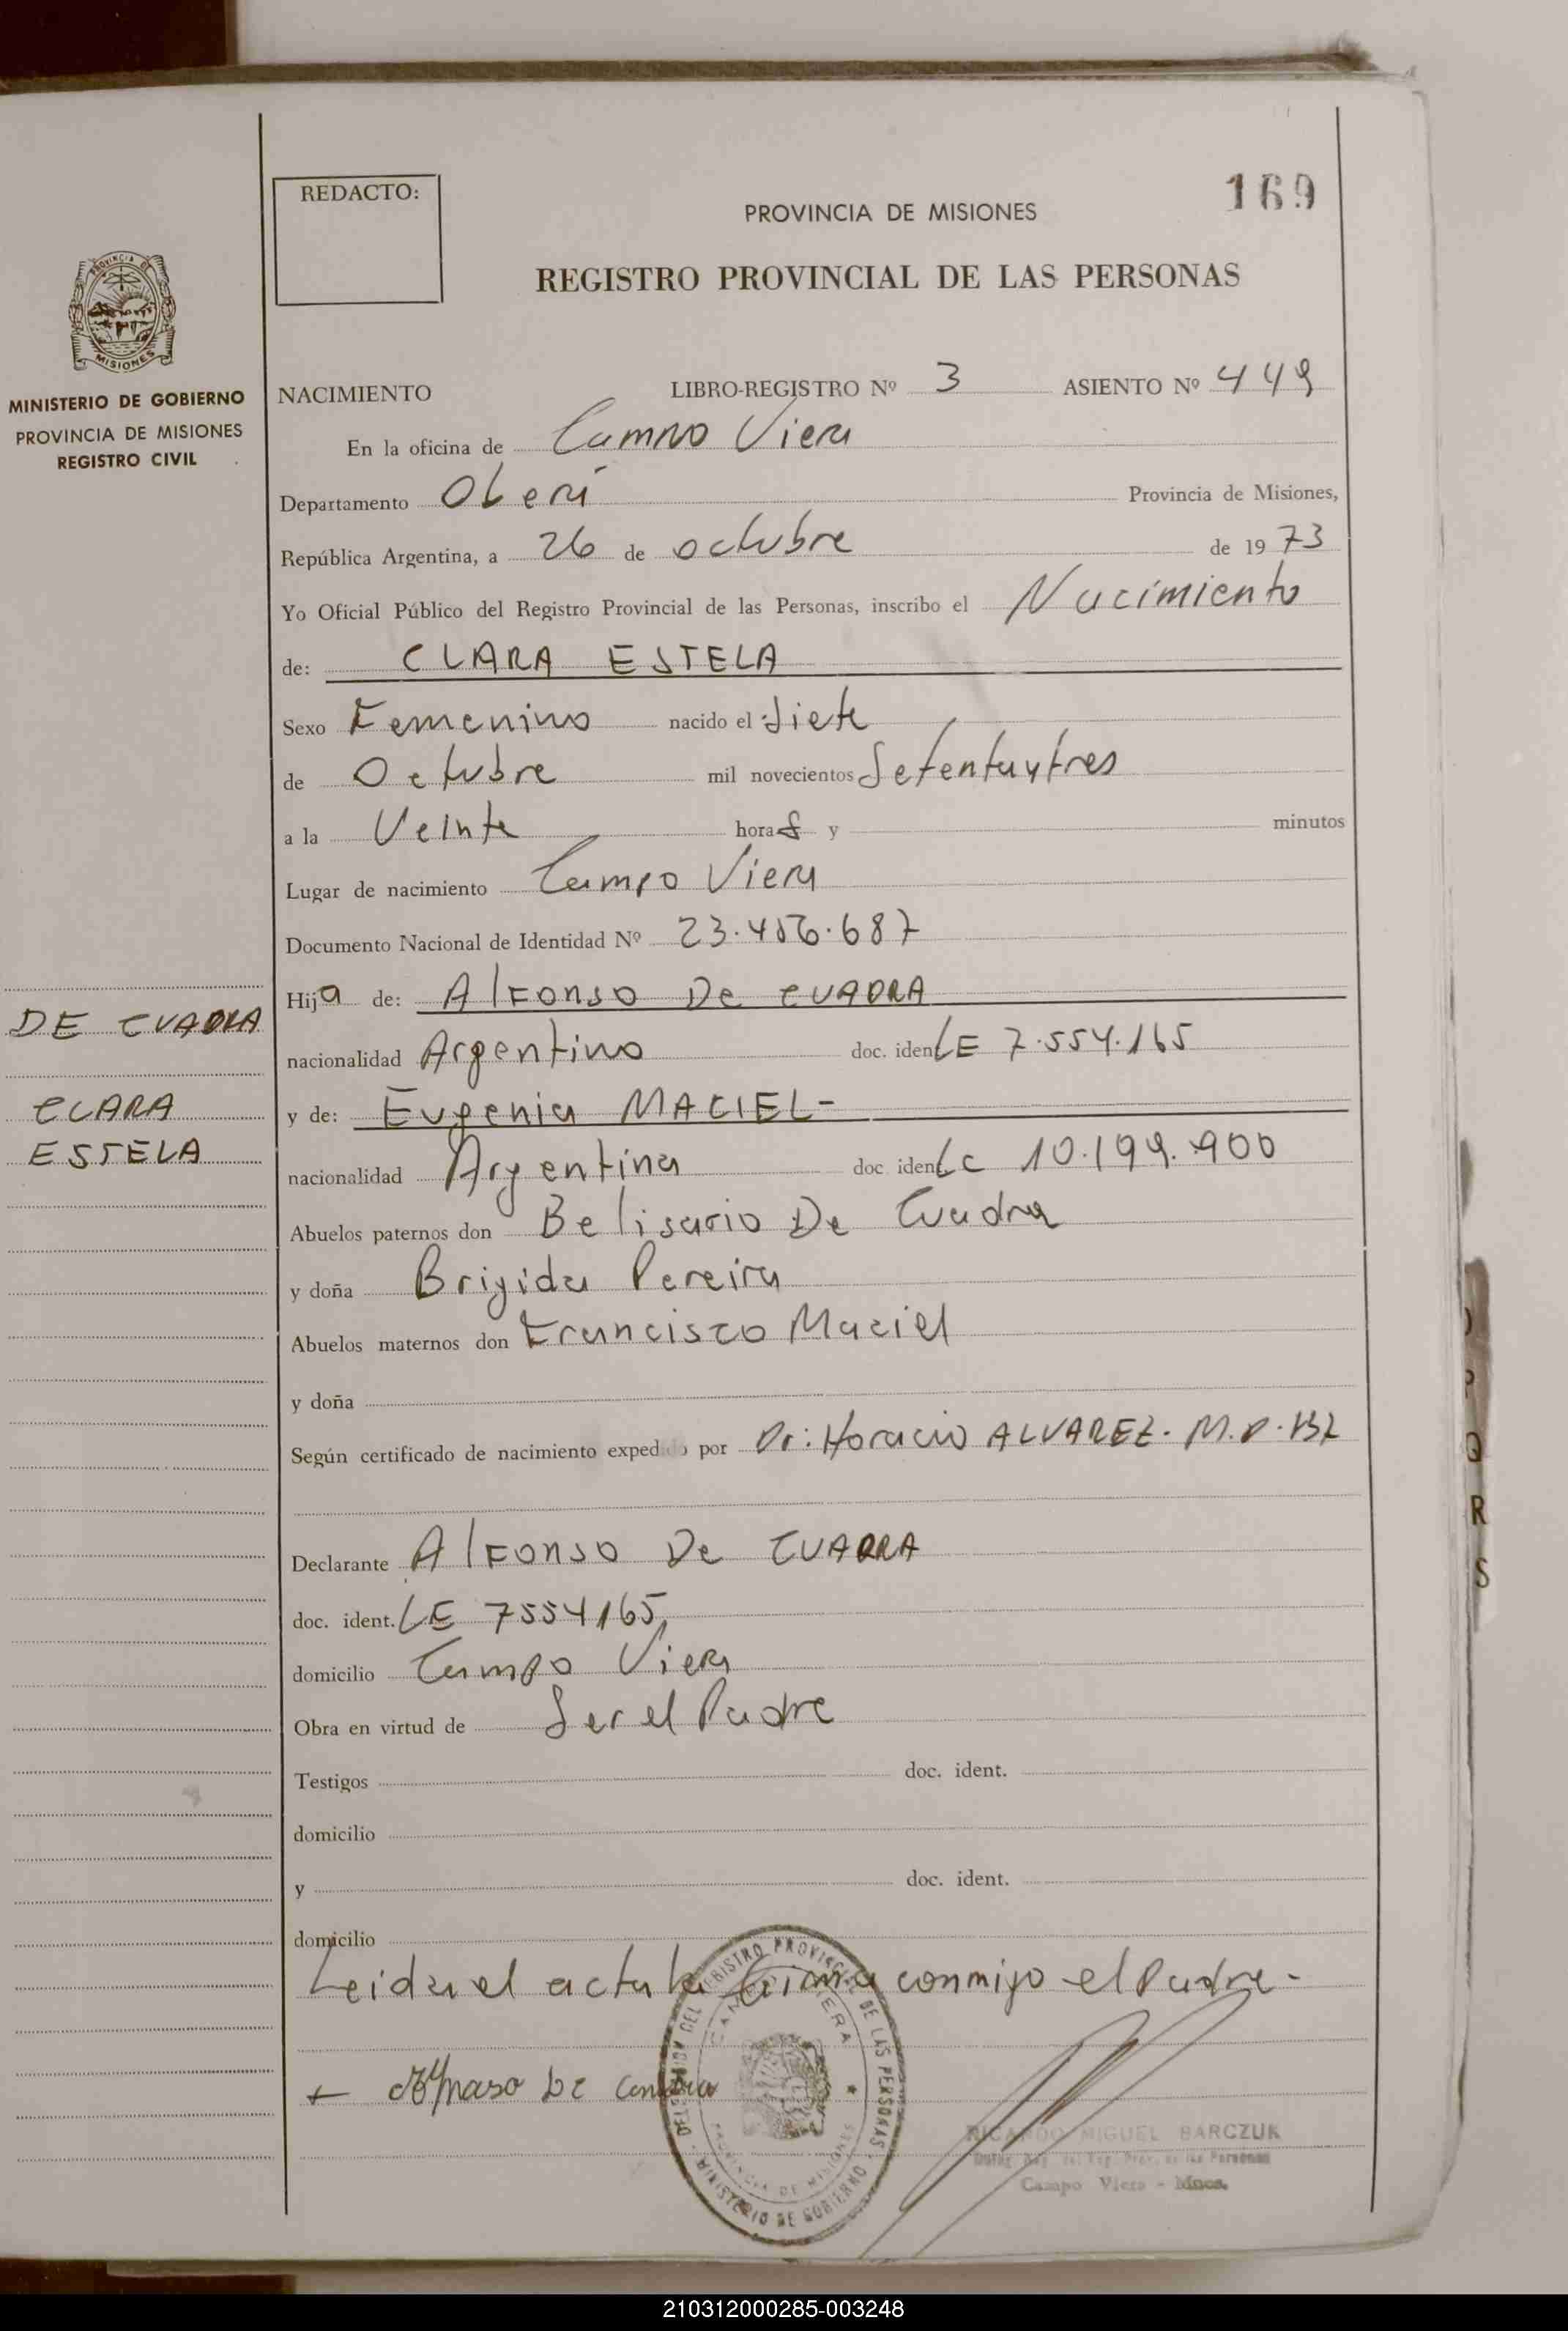 169
REDACTO:
PROVINCIA DE MISIONES
REGISTRO PROVINCIAL DE LAS PERSONAS
PROVINCIA DE MISIONES
MINISTERIO DE GOBIERNO
PROVINCIA DE MISIONES
REGISTRO CIVIL
NACIMIENTO LIBRO-REGISTRO Nº 3 ASIENTO Nº 449
En la oficina de Campo Viera
Departamento Oberá Provincia de Misiones,
República Argentina, a 26 de octubre de 1973
Yo Oficial Público del Registro Provincial de las Personas, inscribo el Nacimiento
de: CLARA ESTELA
Sexo Femenino nacido el Siete
de Octubre mil novecientos Setentaytres
a la Veinte horas y minutos
Lugar de nacimiento Campo Viera
Documento Nacional de Identidad Nº 23.456.687
Hija de: Alfonso De CUADRA
DE CUADRA
nacionalidad Argentino doc. iden LE 7.554.165
CLARA
y de: Eugenia MACIEL-
ESTELA
nacionalidad Argentina doc iden LC 10.199.900
Abuelos paternos don Belisario De Cuadra
y doña Brigida Pereira
Abuelos maternos don Francisco Maciel
y doña
Según certificado de nacimiento expedido por Dr: Horacio ALVAREZ. M.P.
Declarante Alfonso De CUADRA
doc. ident. LE 7554165
domicilio Campo Viera
Obra en virtud de Ser el Padre
Testigos doc. ident.
domicilio
y doc. ident.
domicilio
Leida el acta la firma conmigo el Padre-
De
DELEGACION DEL REGISTRO PROVINCIAL DE LAS PERSONAS
CAMPO VIERA
PROVINCIA DE MISIONES
MINISTERIO DE GOBIERNO
RICARDO MIGUEL BARCZUK
Campo Viera - Mnes.
P
Q
R
S
210312000285-003248